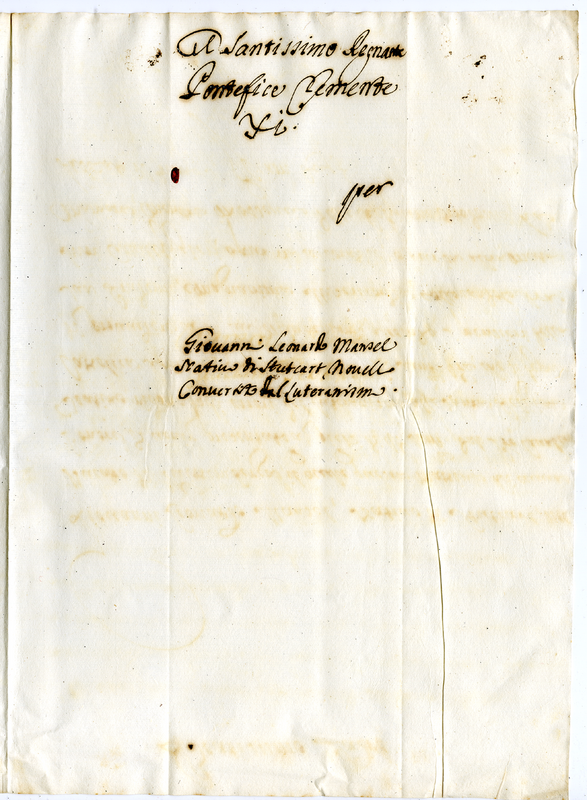 Al Santissimo Regnante
Pontefice Clemente
XI.
per
Giovanni Leonardo Mansel
Nativo di Stutcart Novell
Convertito dal Luteranism